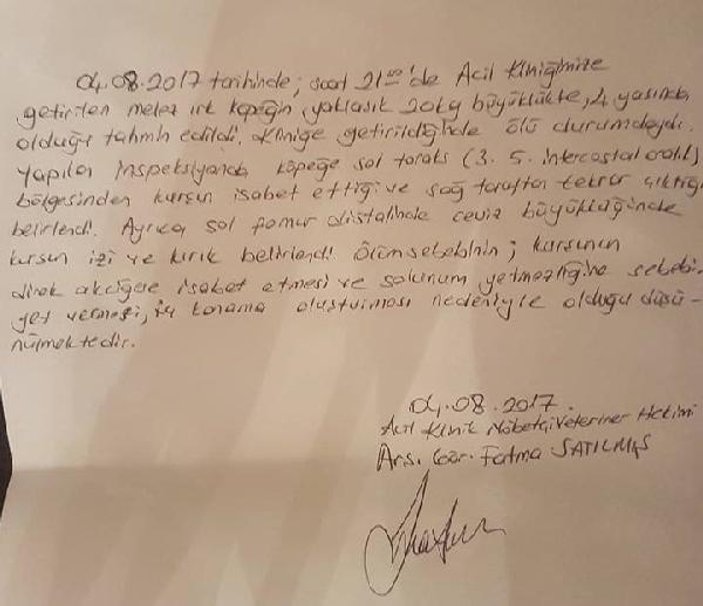 04.08.2017 tarihinde; saat 21⁰⁰'de Acil Kliniğimize
getirilen melez ırk köpeğin yaklaşık 20kg büyüklükte, 4 yaşında
olduğu tahmin edildi. Kliniğe getirildiğinde ölü durumdaydı.
Yapılan inspeksiyonda köpeğe sol toraks (3. 5. intercostal aralık)
bölgesinden kurşun isabet ettiği ve sağ taraftan tekrar çıktığı
belirlendi. Ayrıca sol femur distalinde ceviz büyüklüğünde
kurşun izi ve kırık belirlendi. Ölüm sebebinin; kurşunun
direk akciğere isabet etmesi ve solunum yetmezliğine sebebi-
yet vermesi, iç kanama oluşturması nedeniyle olduğu düşü-
nülmektedir.
04.08.2017
Acil Klinik Nöbetçi Veteriner Hekimi
Arş. Gör. Fatma SATILMIŞ